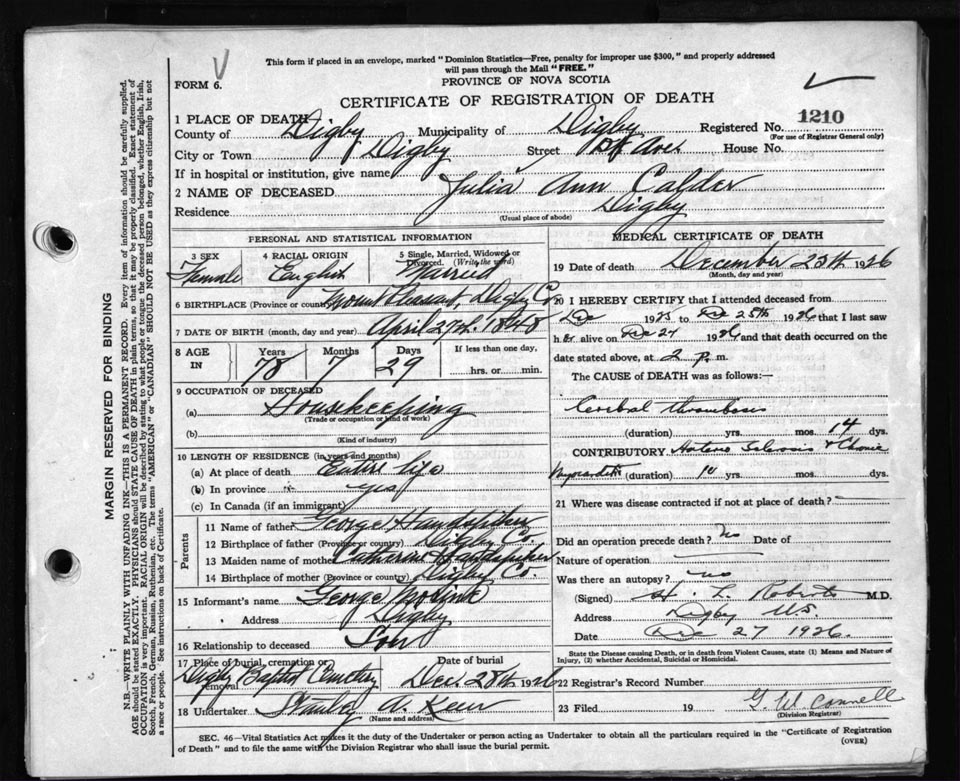 This form if placed in an envelope, marked "Dominion Statistics—Free, penalty for improper use $300," and properly addressed
will pass through the Mail "FREE."
FORM 6.
PROVINCE OF NOVA SCOTIA
CERTIFICATE OF REGISTRATION OF DEATH
1 PLACE OF DEATH
County of Digby Municipality of Digby Registered No. 1210
(For use of Registrar General only)
City or Town Digby Street House No.
If in hospital or institution, give name
2 NAME OF DECEASED Julia Ann Calder
Residence Digby
(Usual place of abode)
PERSONAL AND STATISTICAL INFORMATION
3 SEX 4 RACIAL ORIGIN 5 Single, Married, Widowed or Divorced. (Write the word)
Female English Married
6 BIRTHPLACE (Province or country) Mount Pleasant, Digby Co
7 DATE OF BIRTH (month, day and year) April 27th 1848
8 AGE IN Years Months Days If less than one day,
78 7 29 hrs. or min.
9 OCCUPATION OF DECEASED
(a) Housekeeping
(Trade or occupation or kind of work)
(b)
(Kind of industry)
10 LENGTH OF RESIDENCE (in years and months)
(a) At place of death Entire life
(b) In province yes
(c) In Canada (if an immigrant)
Parents
11 Name of father George
12 Birthplace of father (Province or country) Digby Co
13 Maiden name of mother
14 Birthplace of mother (Province or country) Digby Co.
15 Informant's name George
Address Digby
16 Relationship to deceased Son
17 Place of burial, cremation or removal Date of burial
Digby Baptist Cemetery Dec. 28th 1926
18 Undertaker Stanley A.
(Name and address)
MEDICAL CERTIFICATE OF DEATH
19 Date of death December 25th 1926
(Month, day and year)
20 I HEREBY CERTIFY that I attended deceased from
Dec 1925 to Dec 25th 1926 that I last saw
h er alive on Dec 1926 and that death occurred on the
date stated above, at 2 P. m.
The CAUSE of DEATH was as follows:—
Cerebral thrombosis
(duration) yrs. mos. 14 dys.
CONTRIBUTORY Arterio Sclerosis & Chronic
Myocarditis (duration) 10 yrs. mos. dys.
21 Where was disease contracted if not at place of death?
Did an operation precede death? No Date of
Nature of operation
Was there an autopsy? no
(Signed) H. L. Roberts M.D.
Address Digby N.S.
Date Dec 27 1926.
State the Disease causing Death, or in death from Violent Causes, state (1) Means and Nature of
Injury, (2) whether Accidental, Suicidal or Homicidal.
22 Registrar's Record Number
23 Filed 19 G. W. Connell
(Division Registrar)
SEC. 46—Vital Statistics Act makes it the duty of the Undertaker or person acting as Undertaker to obtain all the particulars required in the "Certificate of Registration
of Death" and to file the same with the Division Registrar who shall issue the burial permit.
(OVER)
MARGIN RESERVED FOR BINDING
N.B.—WRITE PLAINLY WITH UNFADING INK—THIS IS A PERMANENT RECORD. Every item of information should be carefully supplied.
AGE should be stated EXACTLY. PHYSICIANS should STATE CAUSE OF DEATH in plain terms, so that it may be properly classified. Exact statement of
OCCUPATION is very important. RACIAL ORIGIN will be described by stating to what people or tongue the deceased person belonged, whether English, Irish,
Scotch, French, German, Russian, Ruthenian, etc. The terms "AMERICAN" or "CANADIAN" SHOULD NOT BE USED as they express citizenship but not
a race or people. See instructions on back of Certificate.